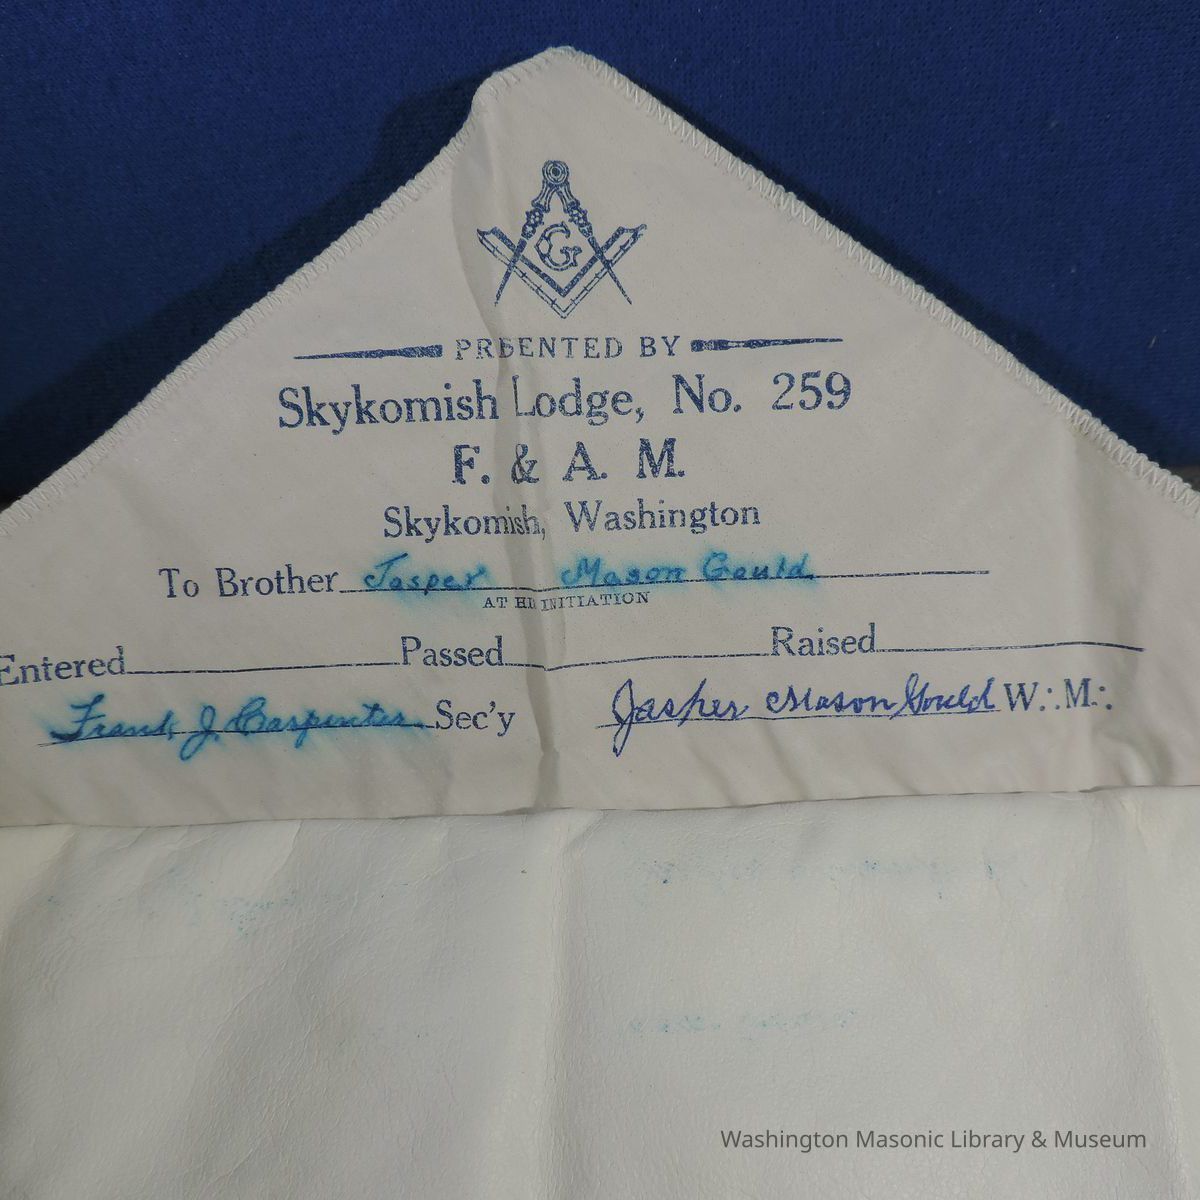 G
PRESENTED BY
Skykomish Lodge, No. 259
F. & A. M.
Skykomish, Washington
To Brother Jasper Mason Gould
AT HIS INITIATION
Entered Passed Raised
Frank J. Carpenter Sec'y Jasper Mason Gould W∴M∴
Washington Masonic Library & Museum